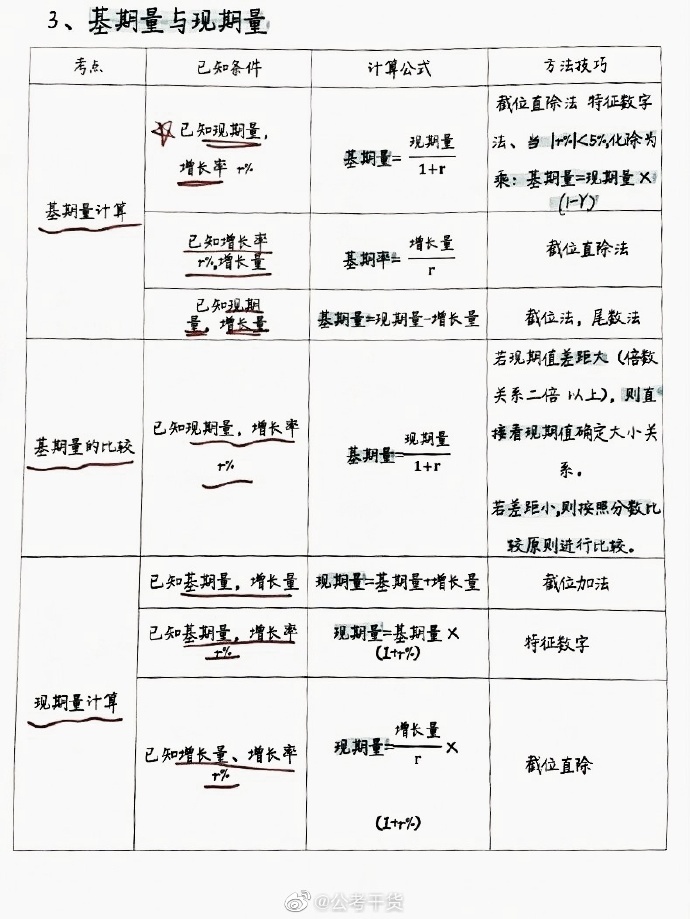 3、基期量与现期量
考点 已知条件 计算公式 方法技巧
基期量计算
已知现期量，
增长率 r%
基期量=现期量/1+r
截位直除法 特征数字
法、当|r%|<5%,化除为
乘：基期量=现期量×
(1-r)
已知增长率
r%,增长量
基期率=增长量/r
截位直除法
已知现期
量，增长量
基期量=现期量-增长量
截位法，尾数法
基期量的比较
已知现期量，增长率
r%
基期量=现期量/1+r
若现期值差距大（倍数
关系二倍 以上），则直
接看现期值确定大小关
系。
若差距小,则按照分数比
较原则进行比较。
现期量计算
已知基期量，增长量
现期量=基期量+增长量
截位加法
已知基期量，增长率
r%
现期量=基期量×
(1+r%)
特征数字
已知增长量、增长率
r%
现期量=增长量/r×
(1+r%)
截位直除
@公考干货